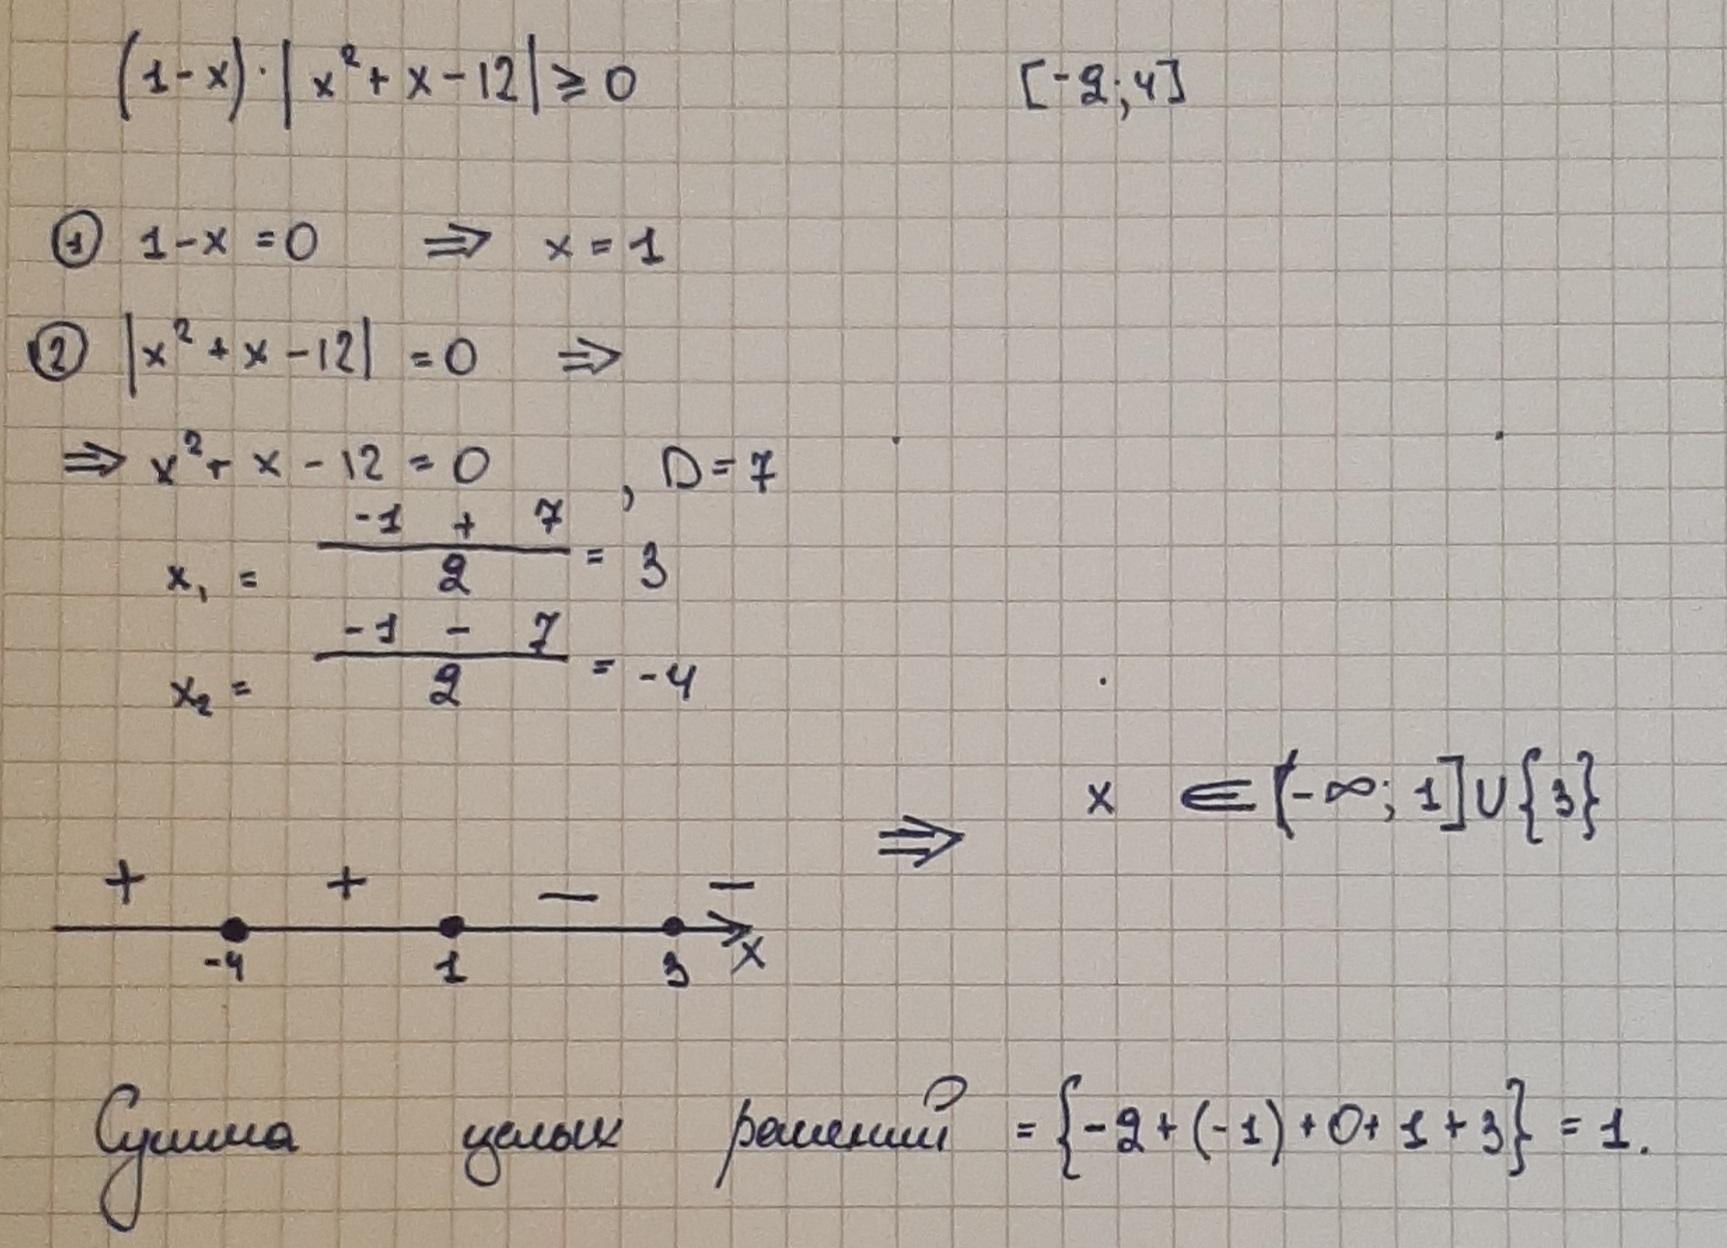 (1-x)·|x²+x-12|≥0 [-2;4]
① 1-x=0 ⇒ x=1
② |x²+x-12|=0 ⇒
⇒ x²+x-12=0, D=7
x₁ = (-1+7)/2 = 3
x₂ = (-1-7)/2 = -4
⇒ x ∈ (-∞;1]∪{3}
+ + — —
-4 1 3 x
Сумма целых решений = {-2+(-1)+0+1+3} = 1.